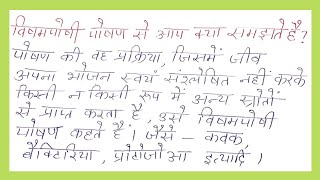 विषमपोषी पोषण से आप क्या समझते हैं?
पोषण की वह प्रक्रिया, जिसमें जीव
अपना भोजन स्वयं संश्लेषित नहीं करके
किसी न किसी रूप में अन्य स्रोतों
से प्राप्त करता है, उसे विषमपोषी
पोषण कहते हैं। जैसे - कवक,
बैक्टिरिया, प्रोटोजोआ इत्यादि।